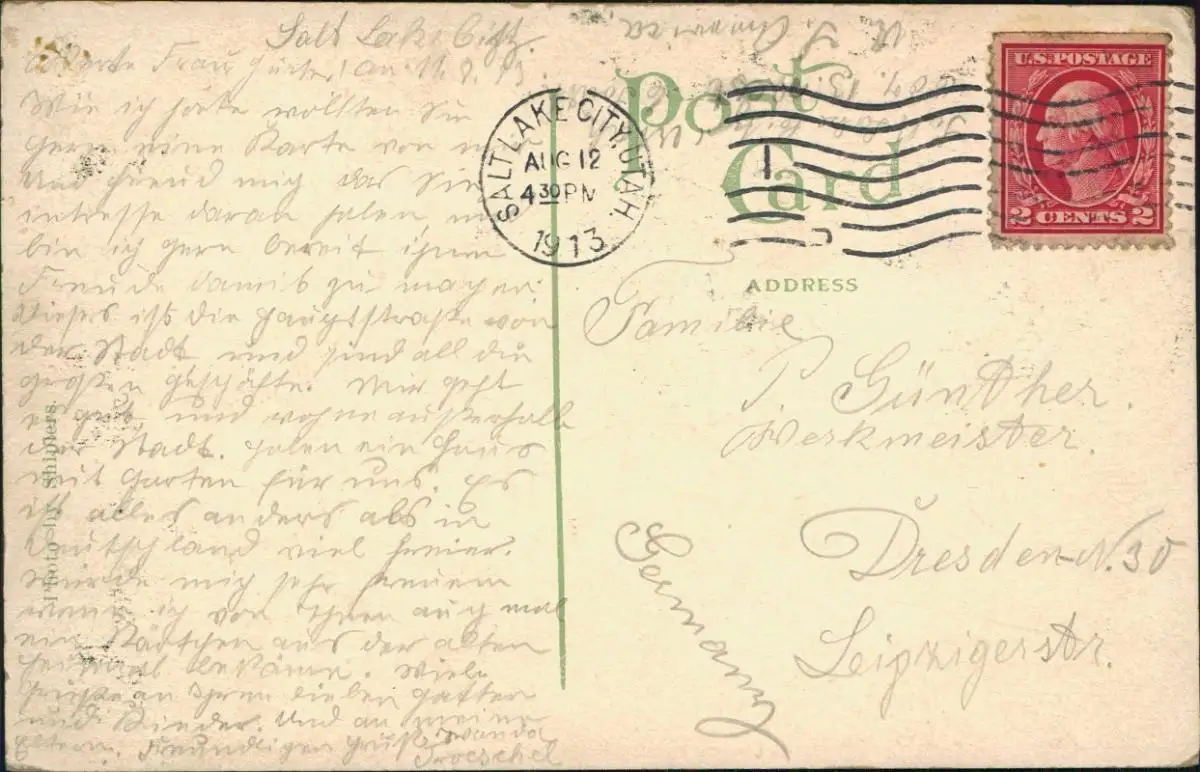 Salt Lake City.
Werte Frau Günther! an 11.8.13.
Wie ich hörte wollten Sie
gern eine Karte von
Und freud mich das Sie
intresse daran haben,
bin ich gern bereit ihnen
Freude damit zu machen
Dieses ist die Hauptstraße von
der Stadt und sind all die
großen Geschäfte. Mir geht
es gut und wohne außerhalb
der Stadt. haben ein Haus
mit Garten für uns. Es
ist alles anders als in
Deutschland viel freier.
Würde mich sehr freuen
wenn ich von Ihnen auch mal
ein Kärtchen aus der alten
Heimat bekäme. Viele
Grüße an Ihren lieben Gatten
und Kinder. Und an meine
Eltern. Freundlichen Gruß Wanda
Troeschel
Photo by Shipler's
Post
Card
SALT LAKE CITY, UTAH.
AUG 12
4 30 PM
1913
1
U.S. POSTAGE
2 CENTS 2
ADDRESS
Familie
P. Günther.
Werkmeister.
Dresden-N. 30
Leipzigerstr.
Germany
N. America